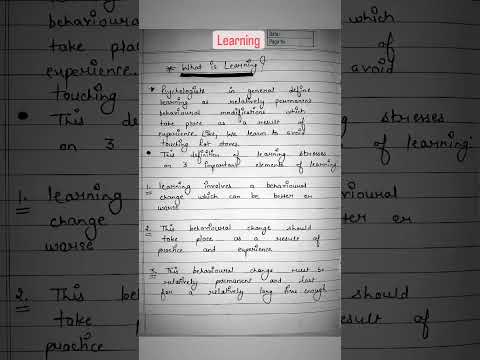 Learning
Date:
Page No.
* What is Learning?
* Psychologists in general define
learning as relatively permanent
behavioural modifications which
take place as a result of
experience. Like, we learn to avoid
touching hot stoves.
• This definition of learning stresses
on 3 important elements of learning:
1. learning involves a behavioural
change which can be better or
worse
2. This behavioural change should
take place as a result of
practice and experience
3. This behavioural change must be
relatively permanent and last
for a relatively long time enough